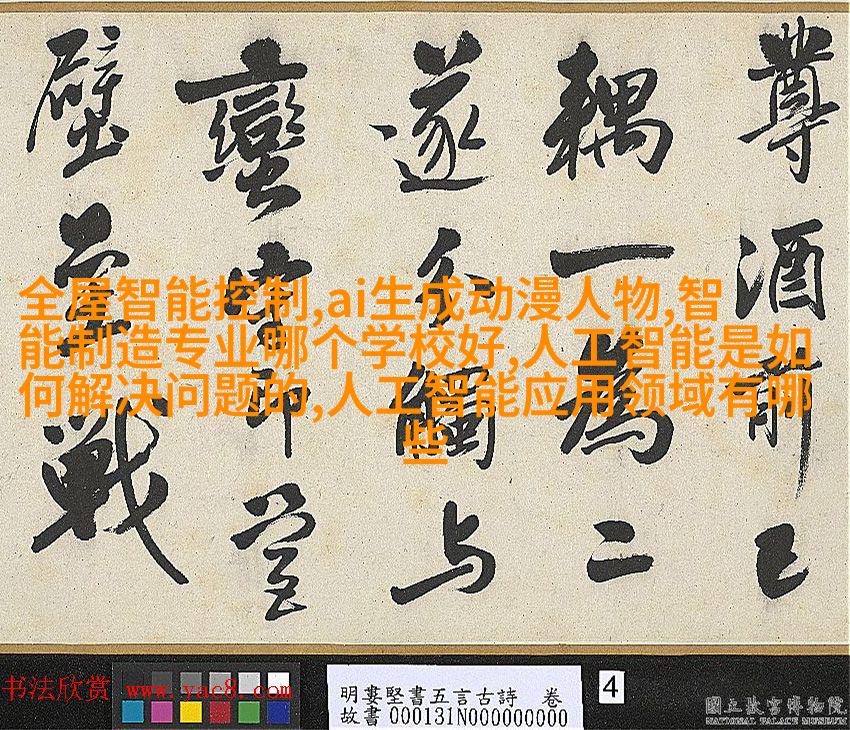 尊酒前己
耦一為二
遂分觸与
蠻即營
壁壘戰
全屋智能控制,ai生成动漫人物,智
能制造专业哪个学校好,人工智能是如
何解决问题的,人工智能应用领域有哪
些
书法欣赏 www.yac8.com
明婁堅書五言古詩 卷
故書 000131N000000000
4
國立故宮博物院
NATIONAL PALACE MUSEUM